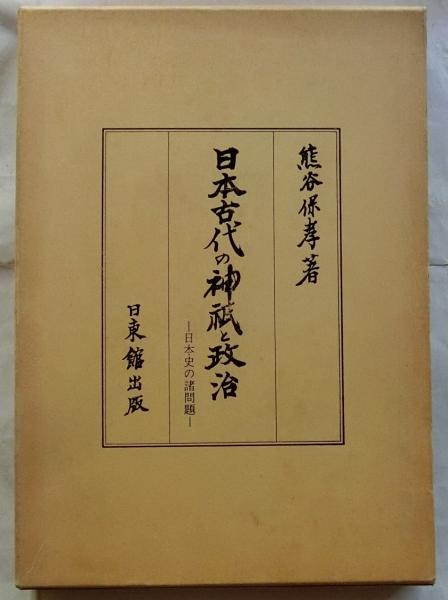 熊谷保孝著
日本古代の神祇と政治
―日本史の諸問題―
日東館出版